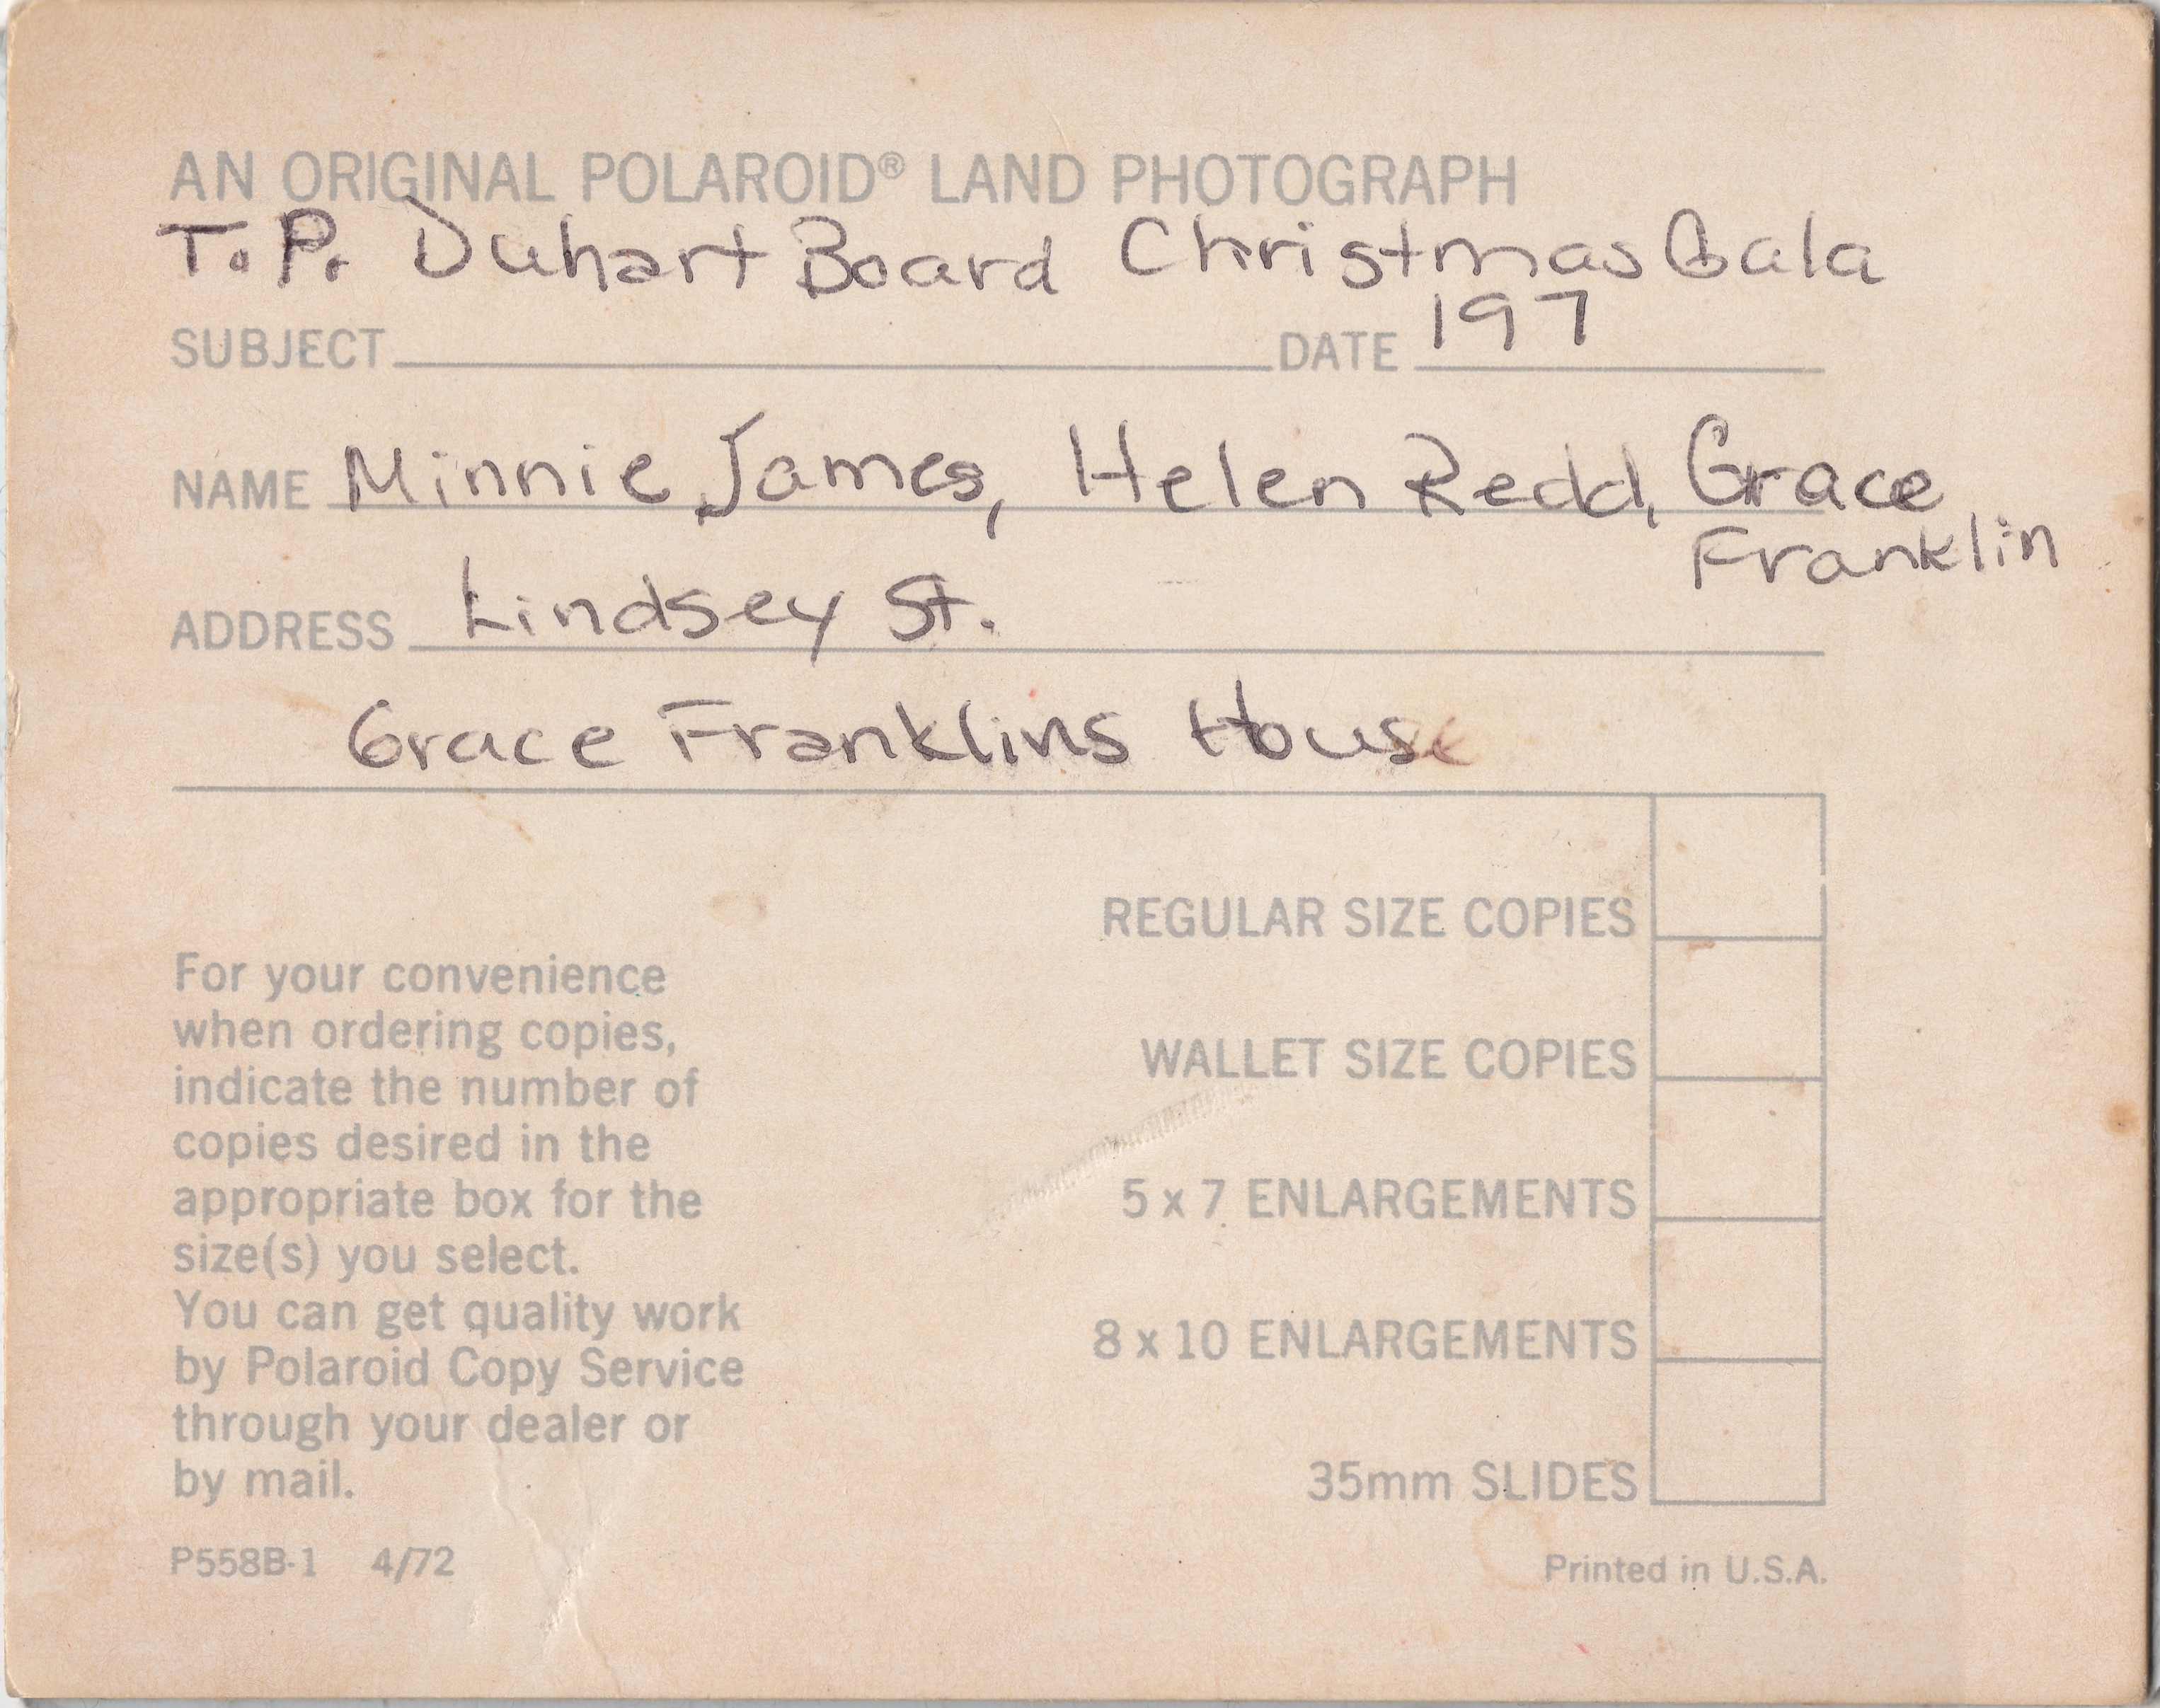 AN ORIGINAL POLAROID® LAND PHOTOGRAPH
T.P. Duhart Board Christmas Gala
SUBJECT DATE 197
NAME Minnie James, Helen Redd, Grace
Franklin
ADDRESS Lindsey St.
Grace Franklins House
REGULAR SIZE COPIES
WALLET SIZE COPIES
5 x 7 ENLARGEMENTS
8 x 10 ENLARGEMENTS
35mm SLIDES
For your convenience
when ordering copies,
indicate the number of
copies desired in the
appropriate box for the
size(s) you select.
You can get quality work
by Polaroid Copy Service
through your dealer or
by mail.
P558B-1 4/72
Printed in U.S.A.